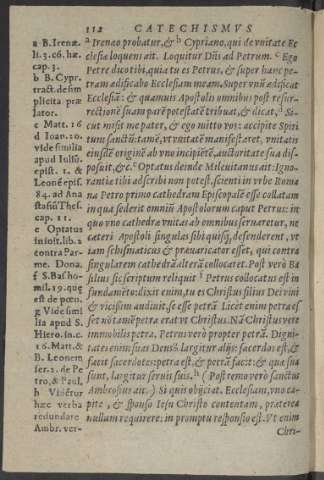 112 CATECHISMVS
a B. Irenæ.
li. 3. c6. hæ.
cap. 3.
b B. Cypr.
tract. de sim
plicita præ
lator.
c Matt. 16
d Ioan. 20.
vide similia
apud Iuliū.
epist. 1. &
Leonē epist.
84. ad Ana
stasiū Thes.
cap. 11.
e Optatus
in initi. lib. 2
contra Par-
me. Dona.
f S. Bas ho-
mil. 29. que
est de pœn.
g Vide simi
lia apud S.
Hiero. in c.
16. Matt. &
B. Leonem
ser. 2. de Pe
tro, & Paul.
h Vidétur
hæc verba
redundare
Ambr. ver-
ᵃ Irenæo probatur, & ᵇ Cypriano, qui de vnitate Ec
clesiæ loquens ait. Loquitur Dñs ad Petrum. ᶜ Ego
Petre dico tibi, quia tu es Petrus, & super hanc pe-
tram ædificabo Ecclesiam meam. Super vnū ædificat
Ecclesiā: & quamuis Apostolis omnibus post resur-
rectionē suam parē potestatē tribuat, & dicat, ᵈ Si-
cut misit me pater, & ego mitto vos: accipite Spiri
tum sanctū: tamē, vt vnitatē manifestaret, vnitatis
eiusdē originē ab vno incipiētē, auctoritate sua dis-
posuit, & c. ᵉ Optatus deinde Mileuitanus ait: Igno-
rantiæ tibi adscribi non potest, scienti in vrbe Roma
na Petro primo cathedram Episcopalē esse collatam
in qua sederit omniū Apostolorum caput Petrus: in
quo vno cathedræ vnitas ab omnibus seruaretur, ne
cæteri Apostoli singulas sibi quisq; defenderent, vt
iam schismaticus & præuaricator esset, qui contra
singularem cathedrā alterā collocaret. Post verò Ba
silius sic scriptum reliquit ᶠ Petrus collocatus est in
fundamēto: dixit enim, tu es Christus filius Dei viui
& vicissim audiuit, se esse petrā Licet enim petra es
set nō tamē petra erat vt Christus. Nā Christus verè
immobilis petra, Petrus verò propter petrā. Digni-
tates enim suas Deus ᵍ largitur alijs: sacerdos est, &
facit sacerdotes: petra est, & petrā facit: & quæ sua
sunt, largitur seruis suis. ʰ ( Postremo verò sanctus
Ambrosius ait. ) Si quis obijciat. Ecclesiam, vno ca-
pite, & sponso Iesu Christo contentam, præterea
nullam requirere: in promptu responsio est. Vt enim
Chri-